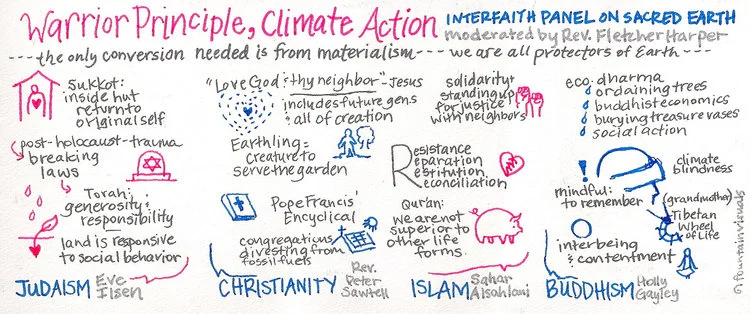 Warrior Principle, Climate Action
INTERFAITH PANEL ON SACRED EARTH
moderated by Rev. Fletcher Harper
---the only conversion needed is from materialism---we are all protectors of Earth---
Sukkot:
inside hut
return to
original self
post-holocaust-trauma
breaking
laws
Torah:
generosity &
responsibility
land is responsive
to social behavior
JUDAISM
Eve
Ilsen
"Love God & thy neighbor" -Jesus
includes future gens
& all of creation
Earthling =
creature to
serve the garden
Pope Francis'
Encyclical
congregations
divesting from
fossil fuels
CHRISTIANITY
Rev.
Peter
Sawtell
solidarity:
standing up
for justice
with neighbors
Resistance
Reparation
Restitution
Reconciliation
Qur'an:
we are not
superior to
other life
forms.
ISLAM
Sahar
Alsahlani
eco-dharma
ordaining trees
buddhist economics
burying treasure vases
social action
!
climate
blindness
mindful:
to remember
(grandmother)
Tibetan
Wheel
of Life
interbeing
& contentment
BUDDHISM
Holly
Gayley
fountainvisuals